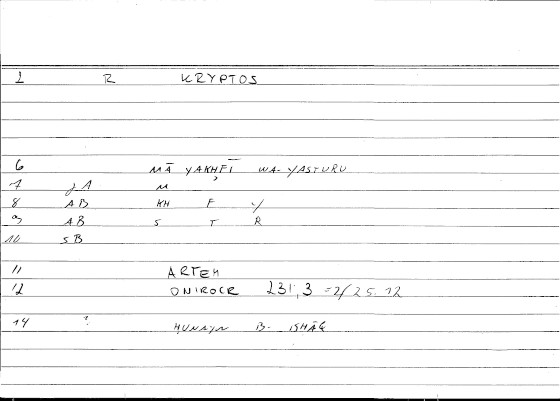 1 R KRYPTOS
6 MĀ YAKHFĪ WA-YASTURU
7 JA M
8 AB KH F Y
9 AB S T R
10 SB
11 ARTEM
12 ONIROCR 231,3 =2/25.12
14 ? ḤUNAYN B. ISHĀQ